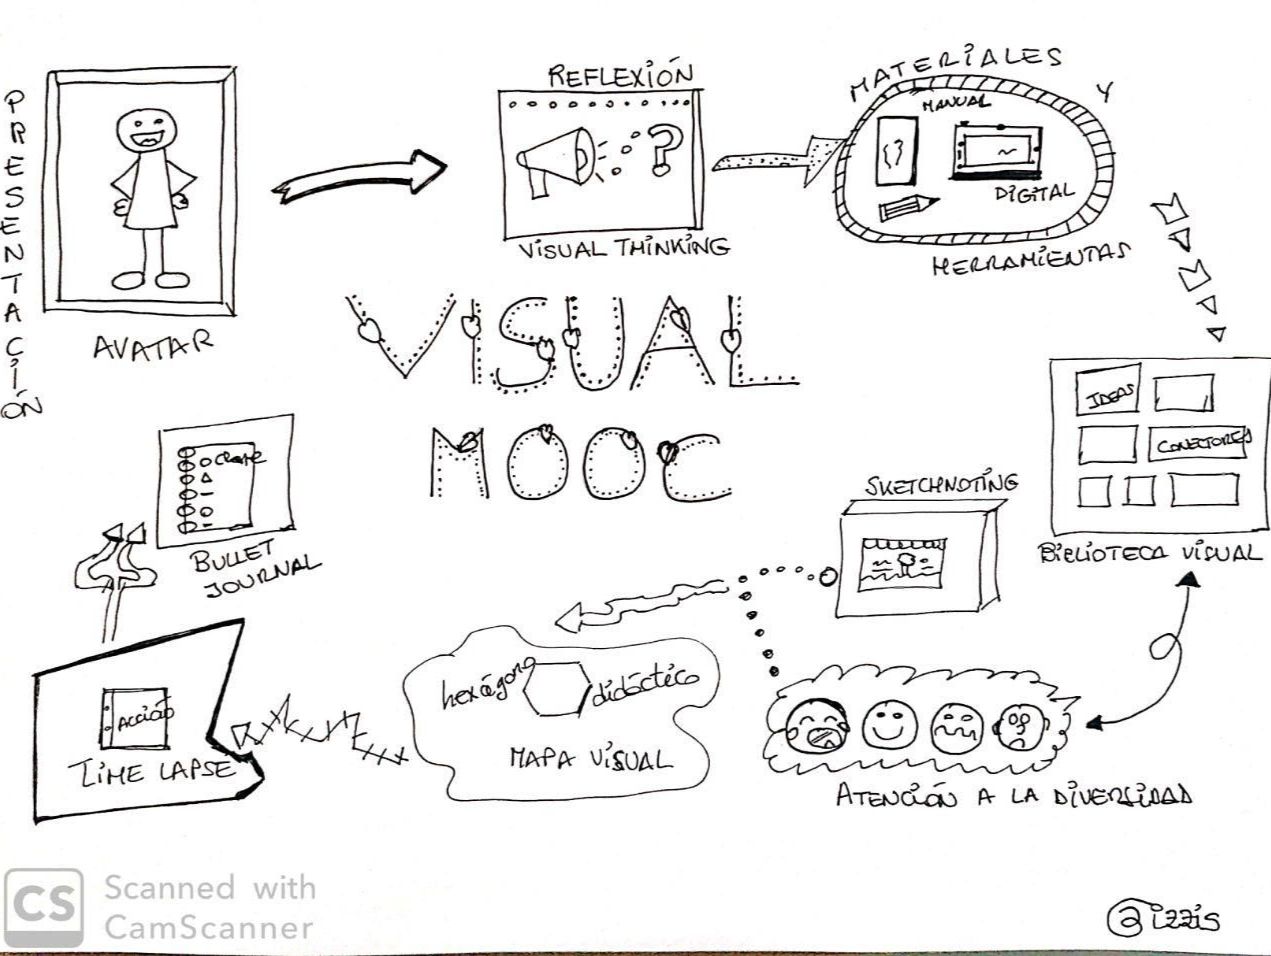 PRESENTACIÓN
AVATAR
REFLEXIÓN
VISUAL THINKING
MATERIALES Y
MANUAL
DIGITAL
HERRAMIENTAS
VISUAL
MOOC
IDEAS
CONECTORES
BIBLIOTECA VISUAL
SKETCHNOTING
ATENCIÓN A LA DIVERSIDAD
hexágono didáctico
MAPA VISUAL
ACCIÓN
TIME LAPSE
clave
BULLET
JOURNAL
CS Scanned with
CamScanner
@izzis